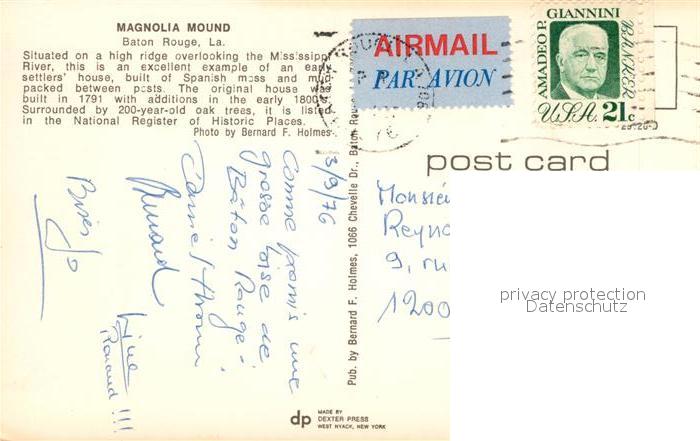 MAGNOLIA MOUND
Baton Rouge, La.
Situated on a high ridge overlooking the Mississippi
River, this is an excellent example of an early
settlers' house, built of Spanish moss and mud
packed between posts. The original house was
built in 1791 with additions in the early 1800's.
Surrounded by 200-year-old oak trees, it is listed
in the National Register of Historic Places.
Photo by Bernard F. Holmes
AIRMAIL
PAR AVION
AMADEO P. GIANNINI
BANKER
U.S.A. 21c
post card
Pub. by Bernard F. Holmes, 1066 Chevelle Dr., Baton Rouge
3/9/76
Comme promis une
grosse bise de
Bâton Rouge.
Renaud
Bises
Jo
Renaud !!!
Monsie
Reyn
9, ru
1200
privacy protection
Datenschutz
dp
MADE BY
DEXTER PRESS
WEST NYACK, NEW YORK